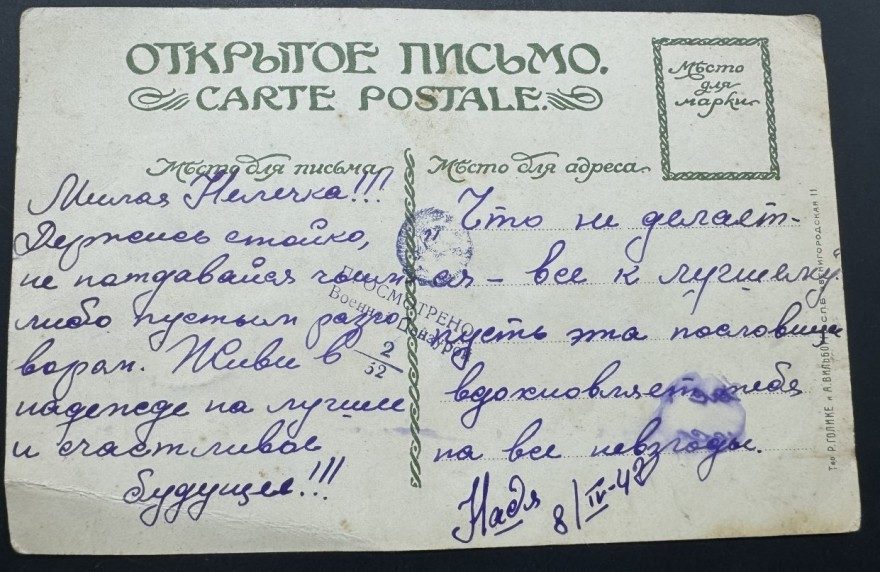 ОТКРЫТОЕ ПИСЬМО.
CARTE POSTALE.
Мѣсто
для
марки
Мѣсто для письма
Милая Нелечка!!!
Держись стойко,
не потдавайся чьим
либо пустым разго
ворам. Живи в
надежде на лучшее
и счастливое
будущее!!!
Мѣсто для адреса
Что не делает-
ся – все к лучшему
пусть эта пословица
вдохновляет тебя
на все невзгоды.
Надя
8/IV-42
ПРОСМОТРЕНО
Военной Цензурой
2
52
Тов. Р. ГОЛИКЕ и А. ВИЛЬБОРГ. СПБ. ЗВЕНИГОРОДСКАЯ 11